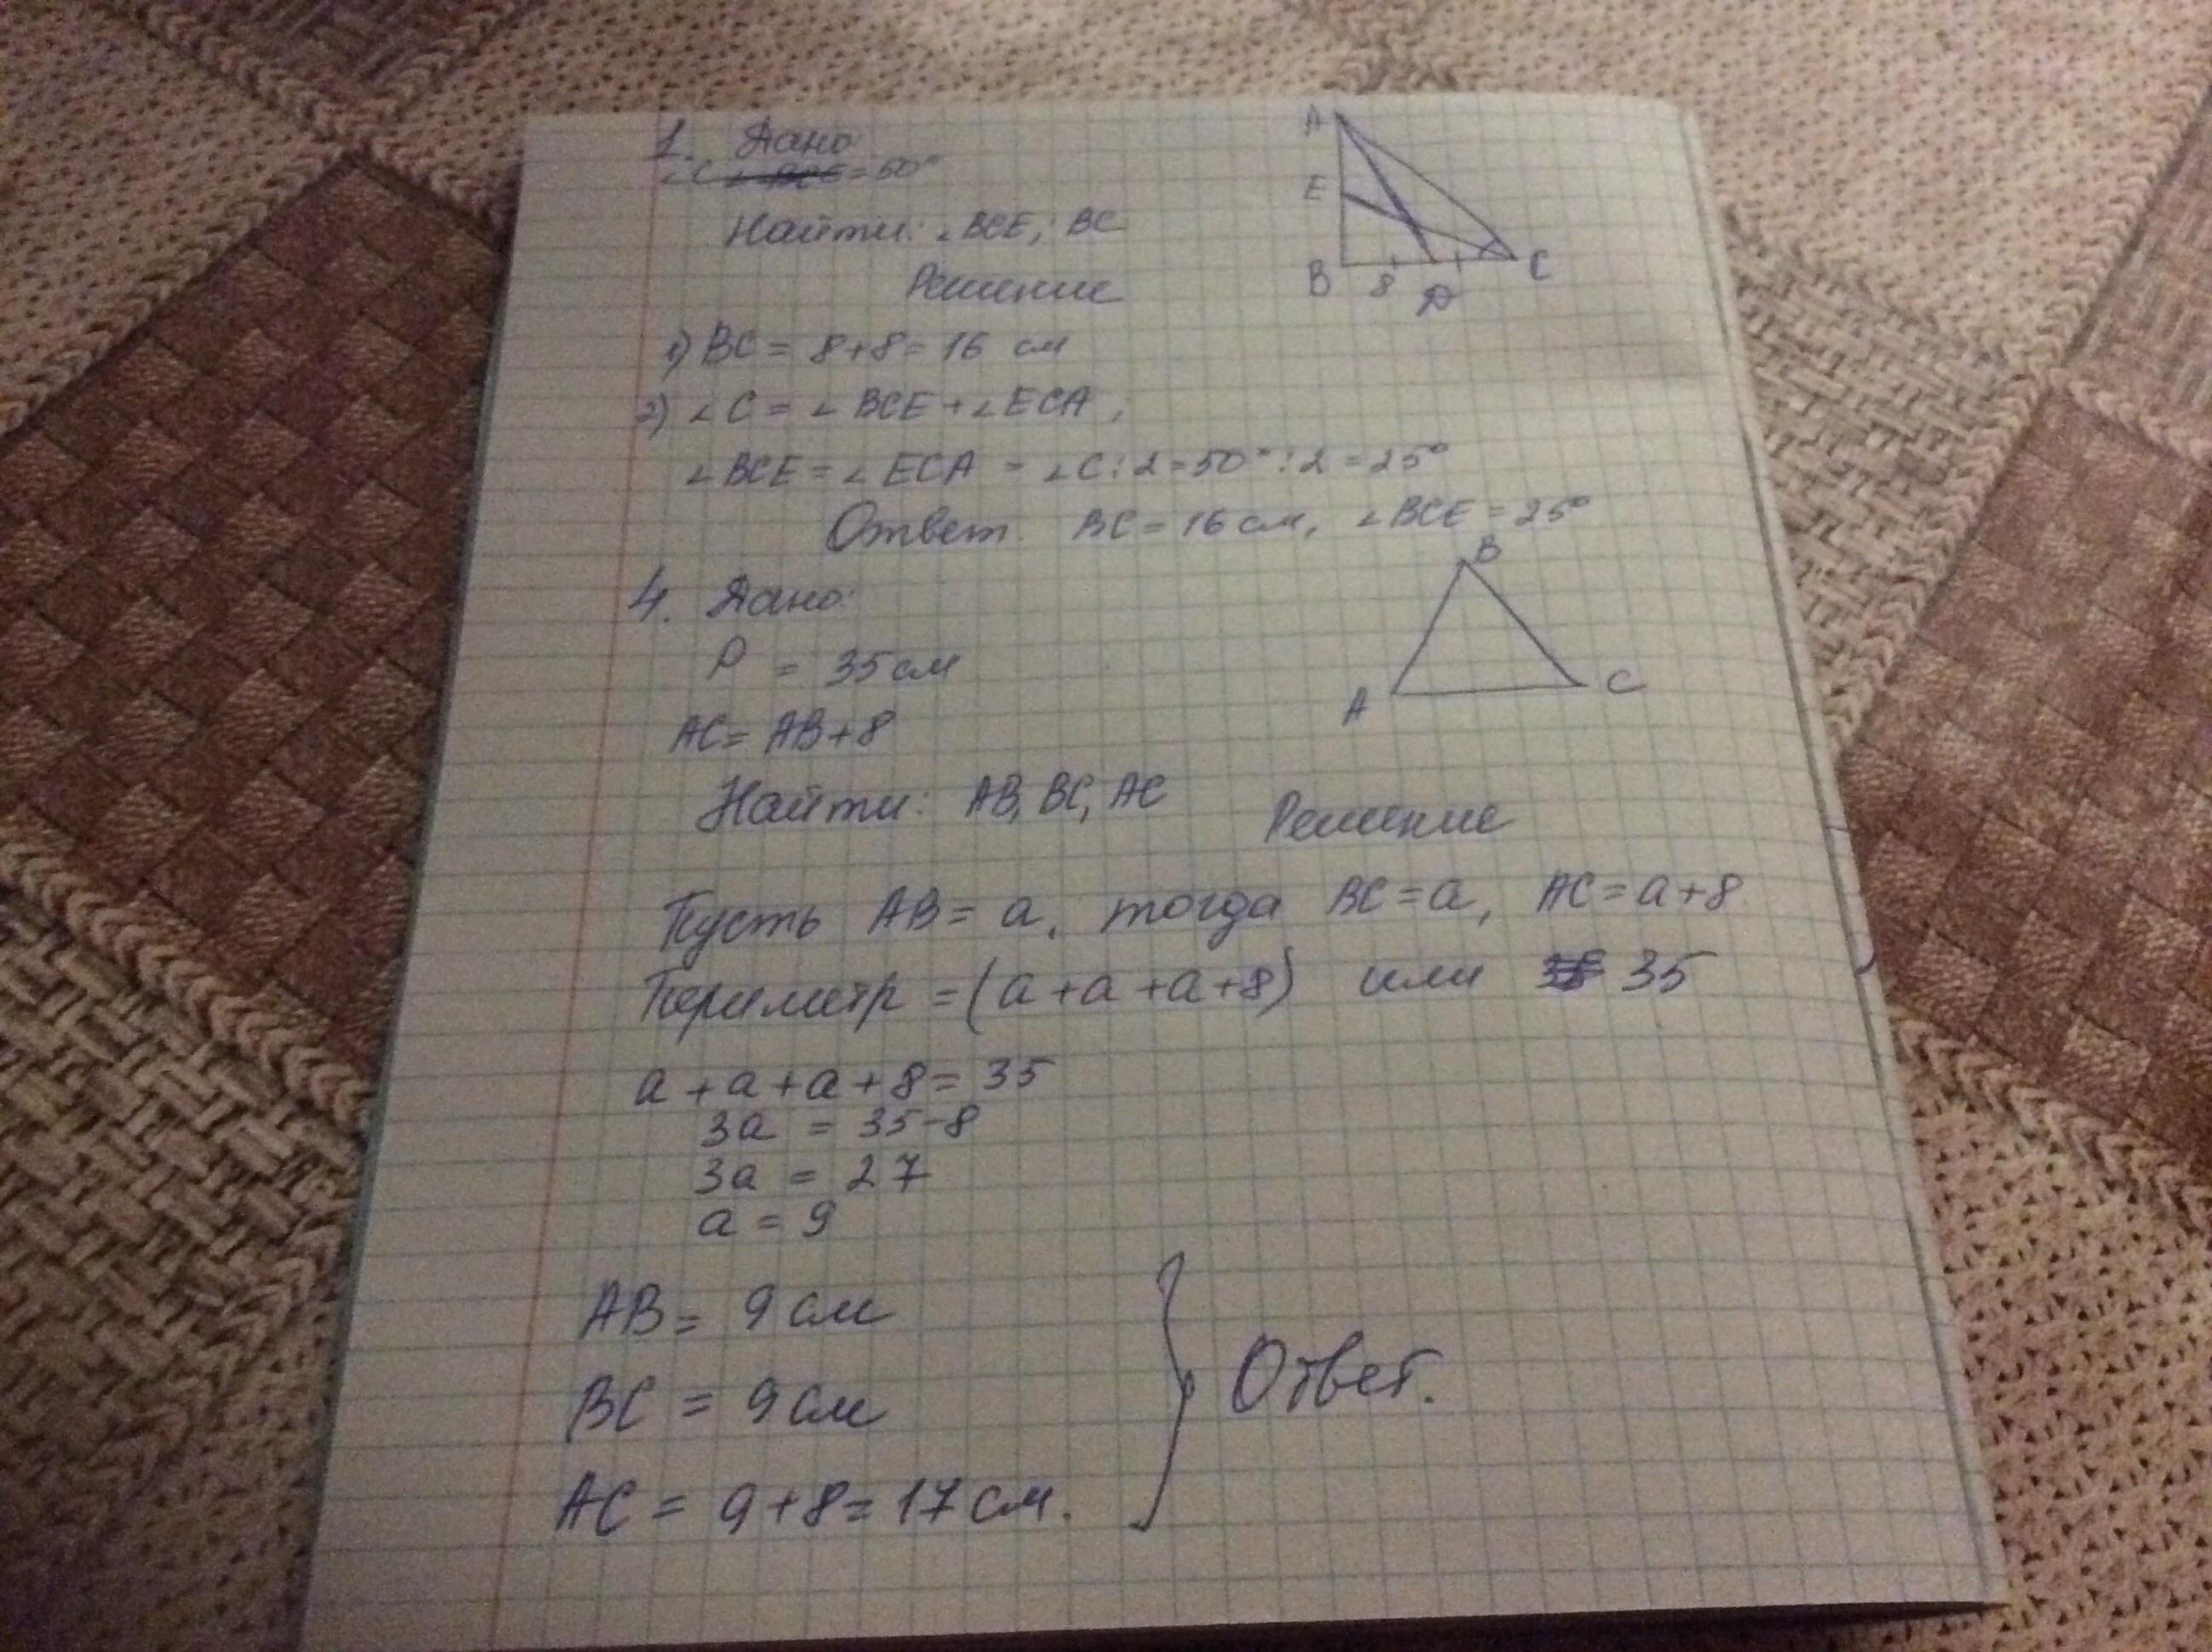 1. Дано:
∠C = 50°
Найти: ∠BCE; BC
Решение
A
E
B 8 D C
1) BC = 8+8 = 16 см
2) ∠C = ∠BCE + ∠ECA;
∠BCE = ∠ECA = ∠C : 2 = 50° : 2 = 25°
Ответ. BC = 16 см, ∠BCE = 25°
4. Дано:
P = 35 см
AC = AB+8
B
A C
Найти: AB, BC, AC
Решение
Пусть AB = a, тогда BC = a, AC = a+8.
Периметр = (a+a+a+8) или 35
a + a + a + 8 = 35
3a = 35-8
3a = 27
a = 9
AB = 9 см
BC = 9 см
AC = 9+8 = 17 см.
Ответ.